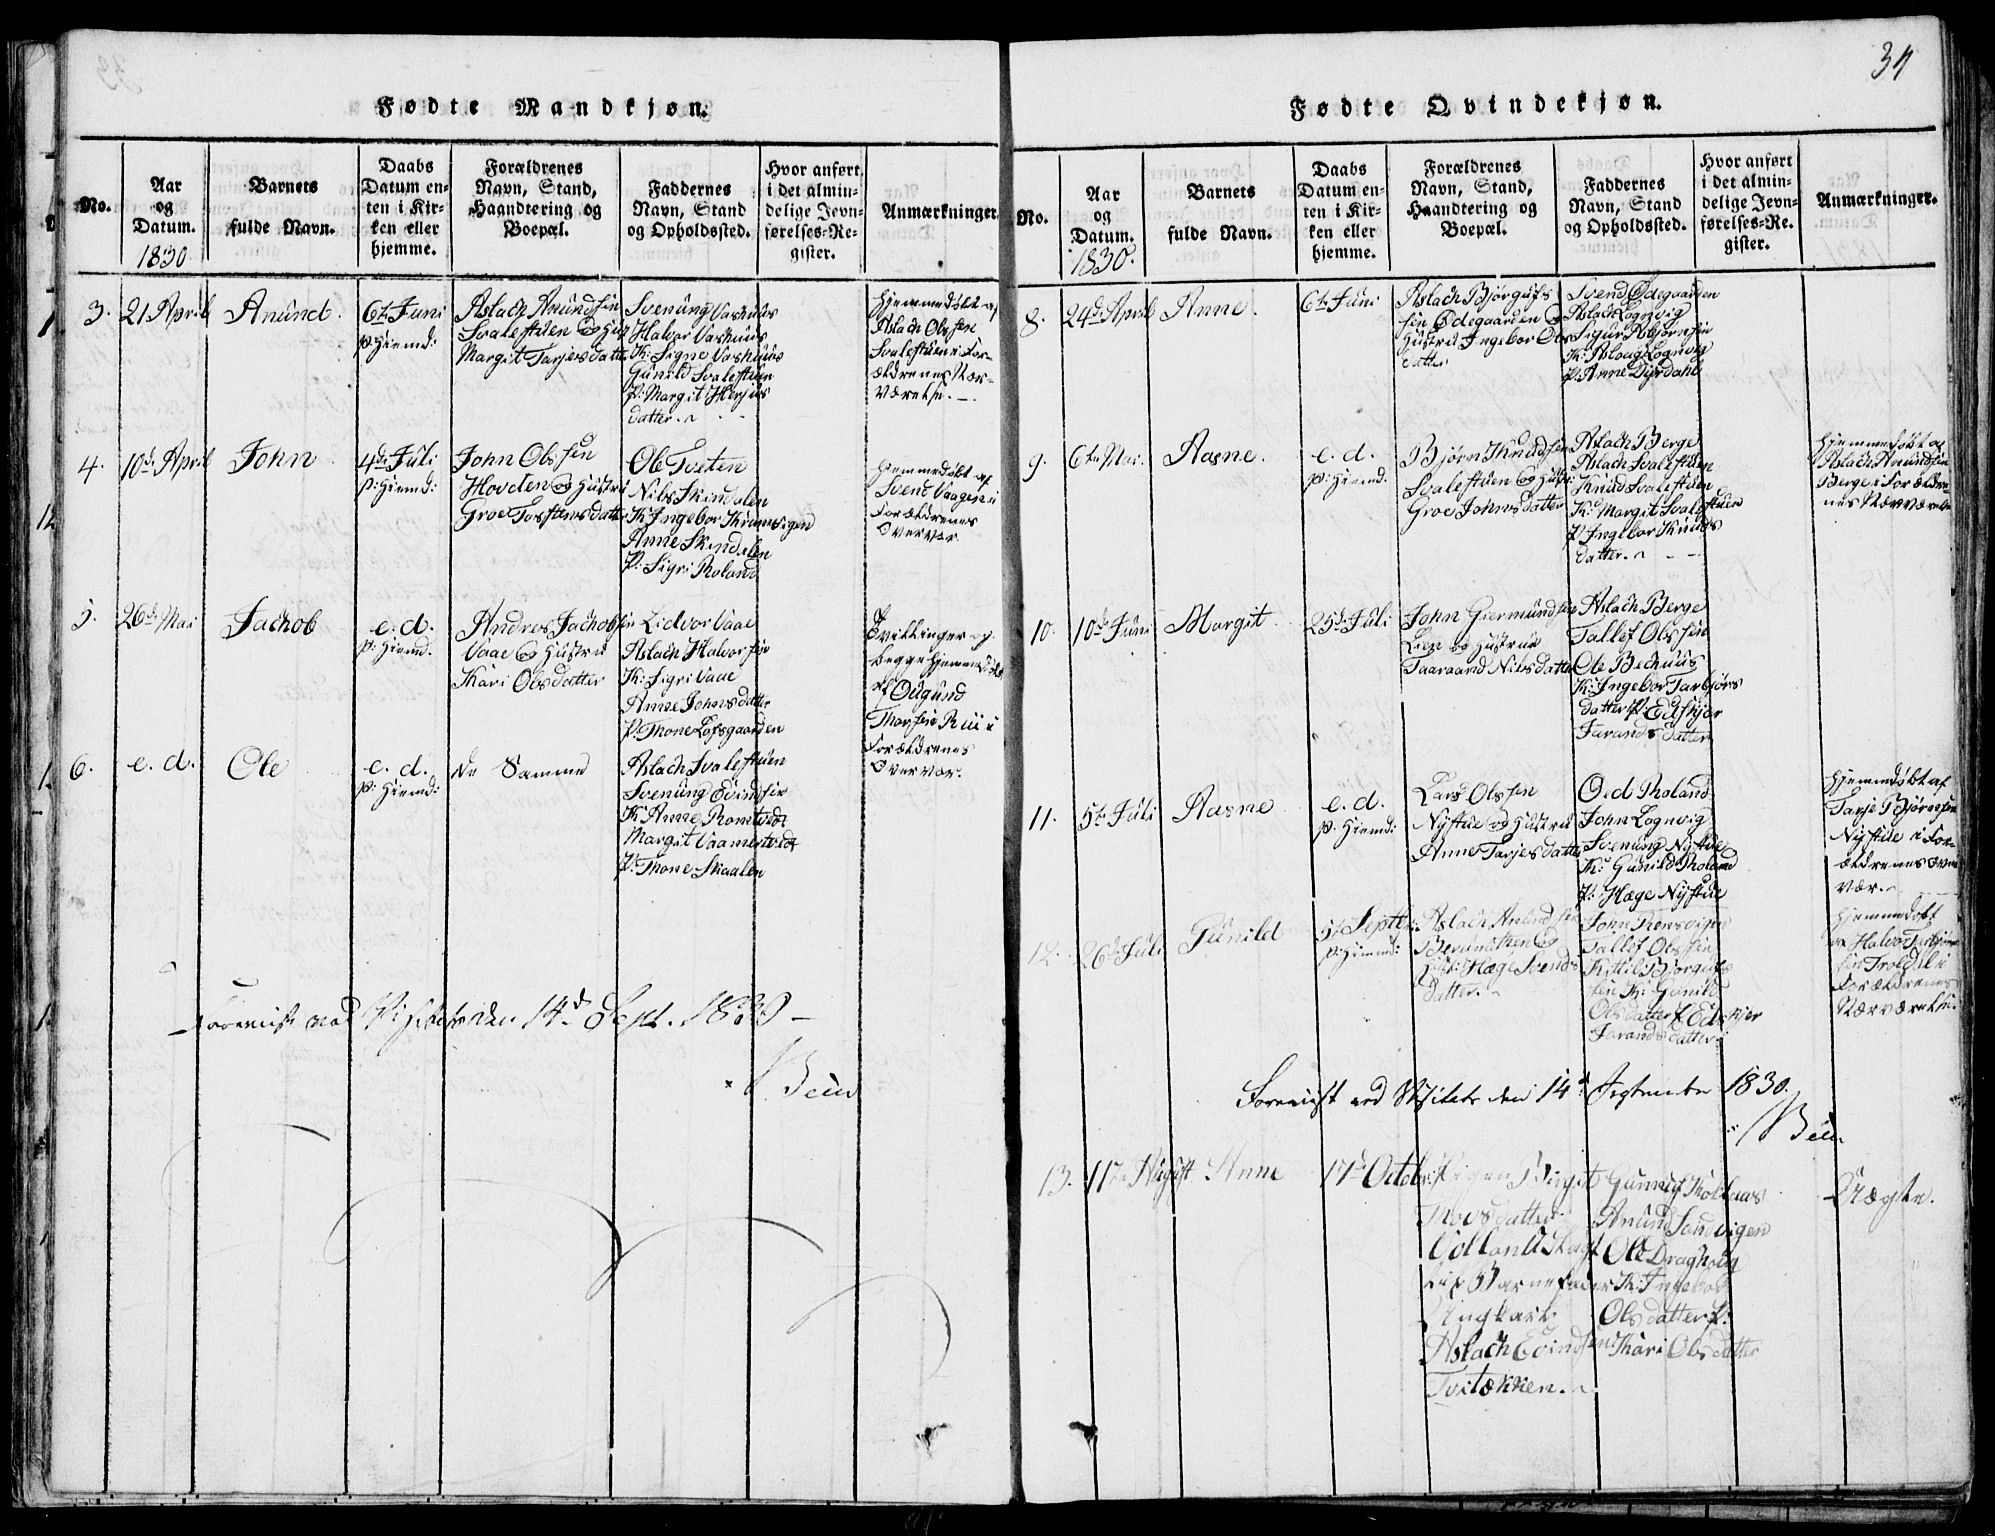 34
Fødte Mandkjøn.
No.
Aar
og
Datum.
1830
Barnets
fulde Navn.
Daabs
Datum en-
ten i Kir-
ken eller
hjemme.
Forældrenes
Navn, Stand,
Haandtering og
Boepæl.
Faddernes
Navn, Stand
og Opholdssted.
Hvor anført
i det almin-
delige Jevn-
førelses-Re-
gister.
Anmærkninger.
3.
21 April
Anund.
6te Juni
p: Hiemd:
Aslach Anundsen
Svalestuen og Hust
Margit Tarjesdatter
Svenung Vashuus
Halvor Vashuus
K: Signe Vashuus
Gunild Svalestuen
P: Margit Herjus
datter.
Hjemmedøbt af
Aslach Olssen
Svalestuen i For-
ældrenes Nær-
værelse.
4.
10de April
John
4de Juli
p: Hiemd:
John Olssen
Hovden og Hustru
Groe Tostensdatter
Ole Tveten
Nils Skindalen
K: Ingebor
Anne Skindalen
P: Sigri Roland
Hjemmedøbt af
Svend Vaagen i
Forældrenes
Overvær.
5.
26de Mai
Jachob
e. d.
p: Hiemd.
Andres Jachobsen
Vaae og Hustru
Kari Olsdatter
Lidvor Vaae
Aslach Halvorsen
K: Sigri Vaae
Anne Johnsdatter
P: Thone Lofsgaarden
Tvillinger og
begge Hjemmedøbt
af Ougund
Thorsen Rui i
Forældrenes
Overvær.
6.
e. d.
Ole
e. d.
p: Hiemd:
De Samme
Aslach Svalestuen
Svenung Eivindsen
K: Anne Romtvedt
Margit Vaamertvedt
P: Thone Skaalen
Foreviist ved Visitats den 14d Sept. 1830
Fødte Qvindekjøn.
No.
Aar
og
Datum.
1830.
Barnets
fulde Navn.
Daabs
Datum en-
ten i Kir-
ken eller
hjemme.
Forældrenes
Navn, Stand,
Haandtering og
Boepæl.
Faddernes
Navn, Stand
og Opholdssted.
Hvor anført
i det almin-
delige Jevn-
førelses-Re-
gister.
Anmærkninger.
8.
24de April
Anne.
6te Juni
Aslach Bjørgufs
sen Ødegaarden og
Hustru Ingebor Ols
datter
Svend Ødegaarden
Aslach Lognvig
Sigur Asbjørnsen
K: Aslaug Lognvig
P: Anne Dyrdahl
9.
6te Mai.
Aasne.
e. d.
p: Hiemd:
Bjørn Knudsen
Svalestuen og Hust:
Groe Johnsdatter
Aslach Berge
Aslach Svalestuen
Knud Svalestuen
K: Margit Svalestuen
P: Ingebor Knuds
datter.
Hjemmedøbt af
Aslach Anundsen
Berge i Forældre-
nes Nærværelse
10.
10de Juni
Margit
25de Juli
John Giermundsen
Lien og Hustrue
Taaraand Nilsdatter
Aslach Berge
Tallef Olssen
Ole Bechuus
K: Ingebor Tarbjørs
datter P: Edskjer
Tarandsdatter
11.
5te Juli
Aasne
e. d.
p: Hiemd:
Lars Olssen
Nystue og Hustru
Anne Tarjesdatter
Oed Roland
John Lognvig
Svenung Nystue
K: Gunild Roland
P: Hæge Nystue
Hjemmedøbt af
Tarje Bjørnsen
Nystue i For-
ældrenes Over
vær.
12.
26de Juli
Gunild
5te Septbr:
p: Hiemd:
Aslach Anundsen
og
Hust: Hæge Svends
datter.
John
Tallef Olssen
Kittil Bjørgufs
sen K: Gunild
Olsdatter P. Edskjer
Tarandsdatter
Hjemmedøbt
af Halvor
sen Troldal i
Forældrenes
Nærværelse.
Foreviist ved Visitats den 14d September 1830.
13.
11te August
Anne
17d October
Pigen Birgit
Thovsdatter
Ungkarl
Aslach Eivindsen
Gunnuf
Anund Sandvigen
Ole
K: Ingebor
Olsdatter P:
Kari Olsdatter
Uægte.